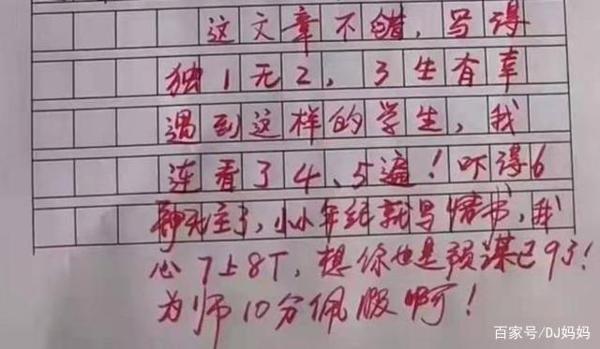 这文章不错,写得
独1无2,3生有幸
遇到这样的学生,我
连看了4、5遍!吓得6
神无主了,小小年纪就写情书,我
心7上8下,想你也是预谋已9了!
为师10分佩服啊!
百家号/DJ妈妈